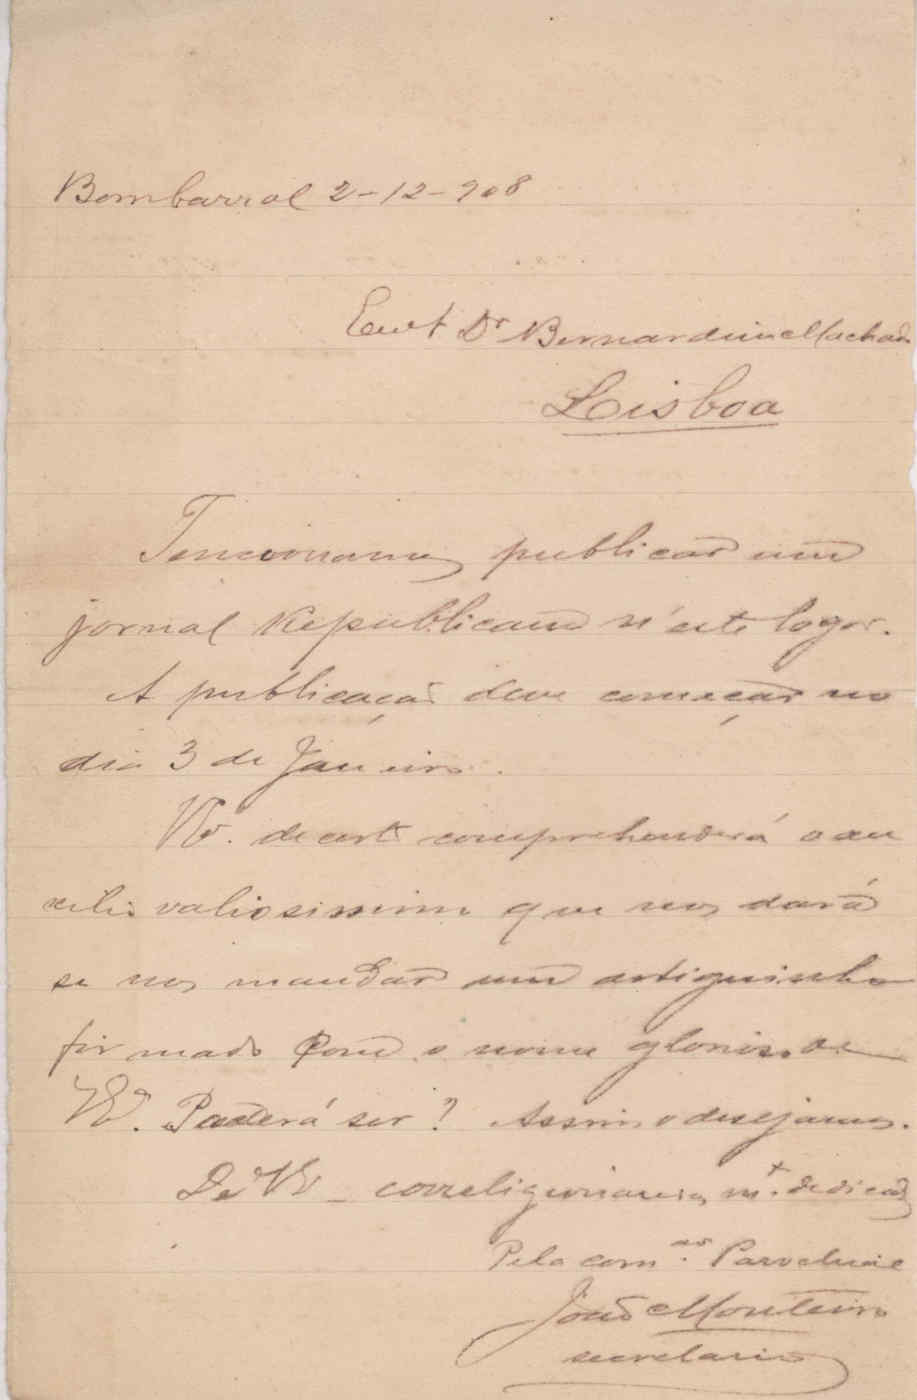 Bombarral 2-12-908
Dr Bernardino Machado
Lisboa
Tencionamos publicar um
jornal Republicano n'este logar.
A publicação deve começar no
dia 3 de Janeiro.
de certo comprehenderá o au
xilio valiosissimo que nos dará
se nos mandar um artiguinho
firmado com o nome glorioso de
Poderá ser? Assim o desejamos.
De correligionarios mt. dedicados
Pela com.ão Parochial
João Monteiro
secretario